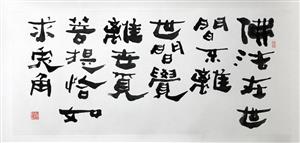 佛法在世
間不離
世間覺
離世覓
菩提恰如
求兔角